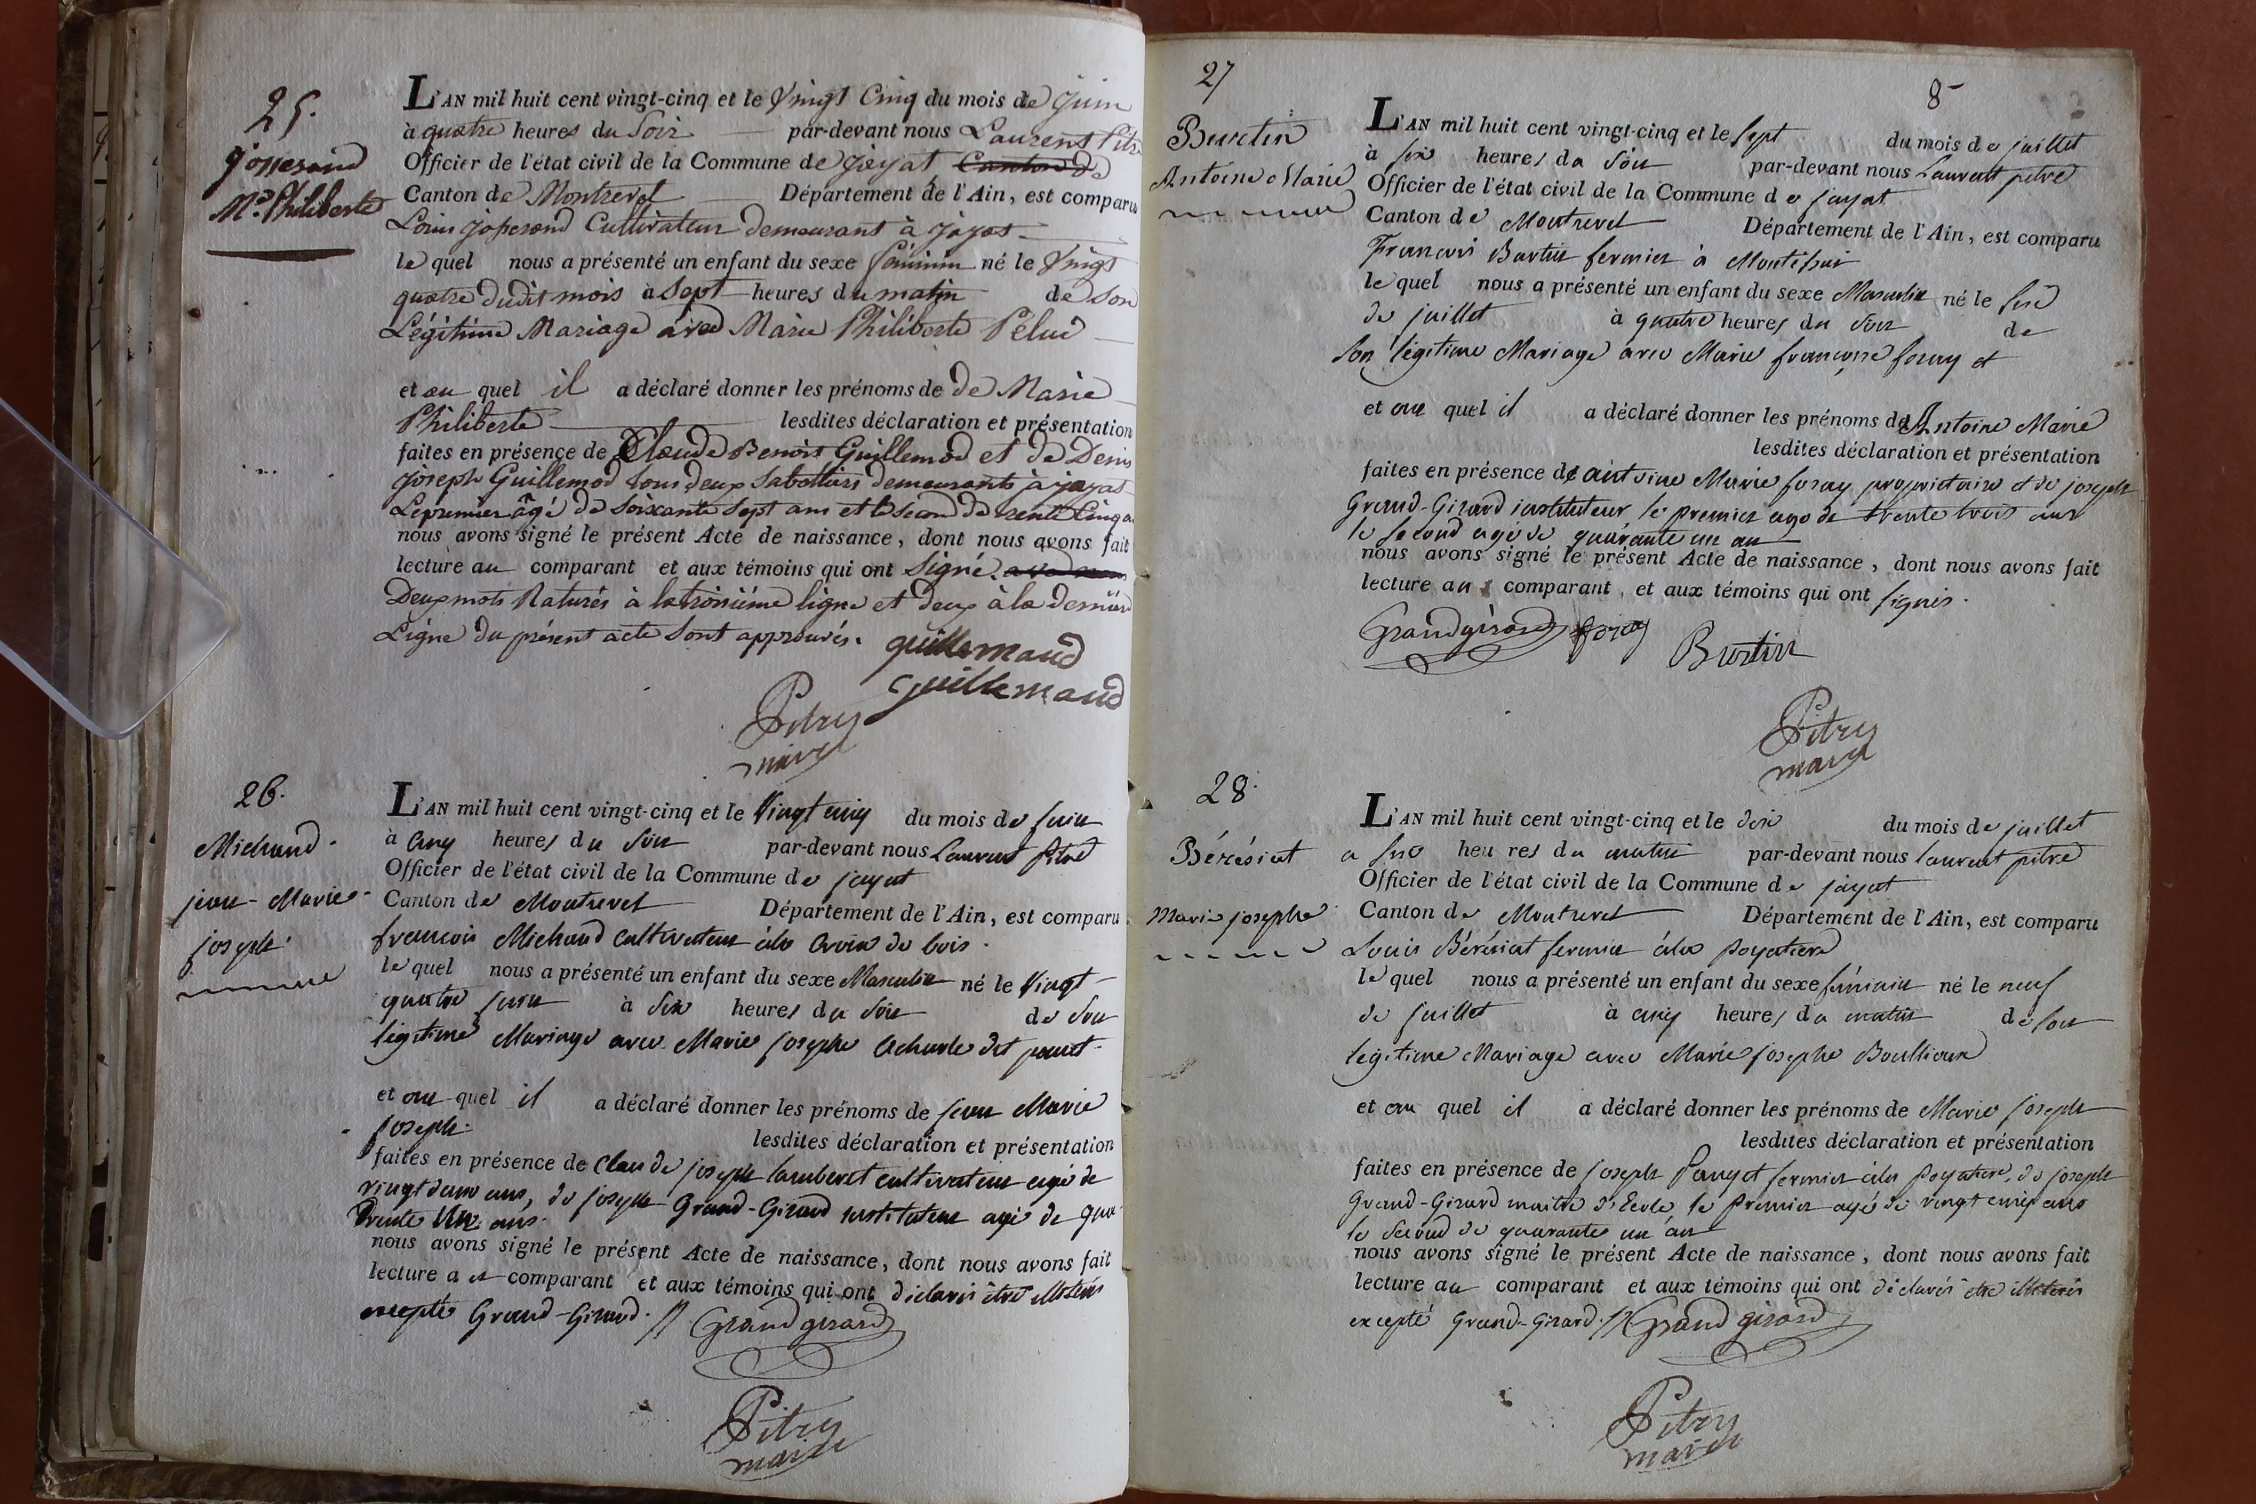 25.
Josserand
Mie Philiberte
L'AN mil huit cent vingt-cinq et le Vingt Cinq du mois de Juin
à quatre heures du Soir par-devant nous Laurent Pitre
Officier de l'état civil de la Commune de Jayat Canton de
Canton de Montrevel Département de l'Ain, est comparu
Louis Josserand Cultivateur demeurant à Jayat
le quel nous a présenté un enfant du sexe féminin né le Vingt
quatre dudit mois à Sept heures du matin de Son
Légitime Mariage avec Marie Philiberte Péluè
et au quel il a déclaré donner les prénoms de de Marie
Philiberte lesdites déclaration et présentation
faites en présence de Claude Benoit Guillemod et de Denis
Joseph Guillemod tous deux Sabottiers demeurants à jayat
Le premier âgé de Soixante Sept ans et le second de trente Cinq a
nous avons signé le présent Acte de naissance, dont nous avons fait
lecture au comparant et aux témoins qui ont Signé. avec nous
Deux mots Raturés à la troisième ligne et deux à la dernière
Ligne du présent acte Sont approuvés. guillemaud
guillemaud
Pitre
maire
26.
Michaud.
jean-Marie
joseph.
L'AN mil huit cent vingt-cinq et le Vingt cinq du mois de juin
à cinq heures du Soir par-devant nous Laurent Pitre
Officier de l'état civil de la Commune de jayat
Canton de Montrevel Département de l'Ain, est comparu
françois Michaud cultivateur à la Croix de bois.
le quel nous a présenté un enfant du sexe Masculin né le Vingt
quatre juin à Six heures du Soir de Son
légitime Mariage avec Marie josephe dit
et au quel il a déclaré donner les prénoms de jean Marie
joseph. lesdites déclaration et présentation
faites en présence de Claude joseph lamberet cultivateur agé de
vingt deux ans, de joseph Grand-Girard instituteur agé de qua
trente un ans.
nous avons signé le présent Acte de naissance, dont nous avons fait
lecture au comparant et aux témoins qui ont déclarés être illétérés
excepté Grand-Girard. Grandgirard
Pitre
maire
27
8
Burtin
Antoine Marie
L'AN mil huit cent vingt-cinq et le Sept du mois de juillet
à six heures du Soir par-devant nous Laurent pitre
Officier de l'état civil de la Commune de jayat
Canton de Montrevel Département de l'Ain, est comparu
François Burtin fermier à
le quel nous a présenté un enfant du sexe Masculin né le Six
de juillet à quatre heures du Soir de
Son légitime Mariage avec Marie françoise foray et
et au quel il a déclaré donner les prénoms de Antoine Marie
lesdites déclaration et présentation
faites en présence de antoine Marie foray propriétaire et de joseph
Grand-Girard instituteur le premier agé de trente trois ans
le second agé de quarante un an
nous avons signé le présent Acte de naissance, dont nous avons fait
lecture au comparant, et aux témoins qui ont signés.
Grandgirard foray Burtin
Pitre
maire
28.
Bérésiat
Marie josephe
L'AN mil huit cent vingt-cinq et le dix du mois de juillet
a six heures du matin par-devant nous laurent pitre
Officier de l'état civil de la Commune de jayat
Canton de Montrevel Département de l'Ain, est comparu
Louis Bérésiat fermier à la poyatiere
le quel nous a présenté un enfant du sexe féminin né le neuf
de juillet à cinq heures du matin de son
légitime Mariage avec Marie josephe Boullioux
et au quel il a déclaré donner les prénoms de Marie joseph
lesdites déclaration et présentation
faites en présence de joseph Panget fermier à la Poyatiere, de joseph
Grand-Girard maitre d'Ecole, le Premier agé de vingt cinq ans
le Second de quarante un an
nous avons signé le présent Acte de naissance, dont nous avons fait
lecture au comparant et aux témoins qui ont déclarés être illétérés
excepté Grand-Girard. Grandgirard
Pitre
maire